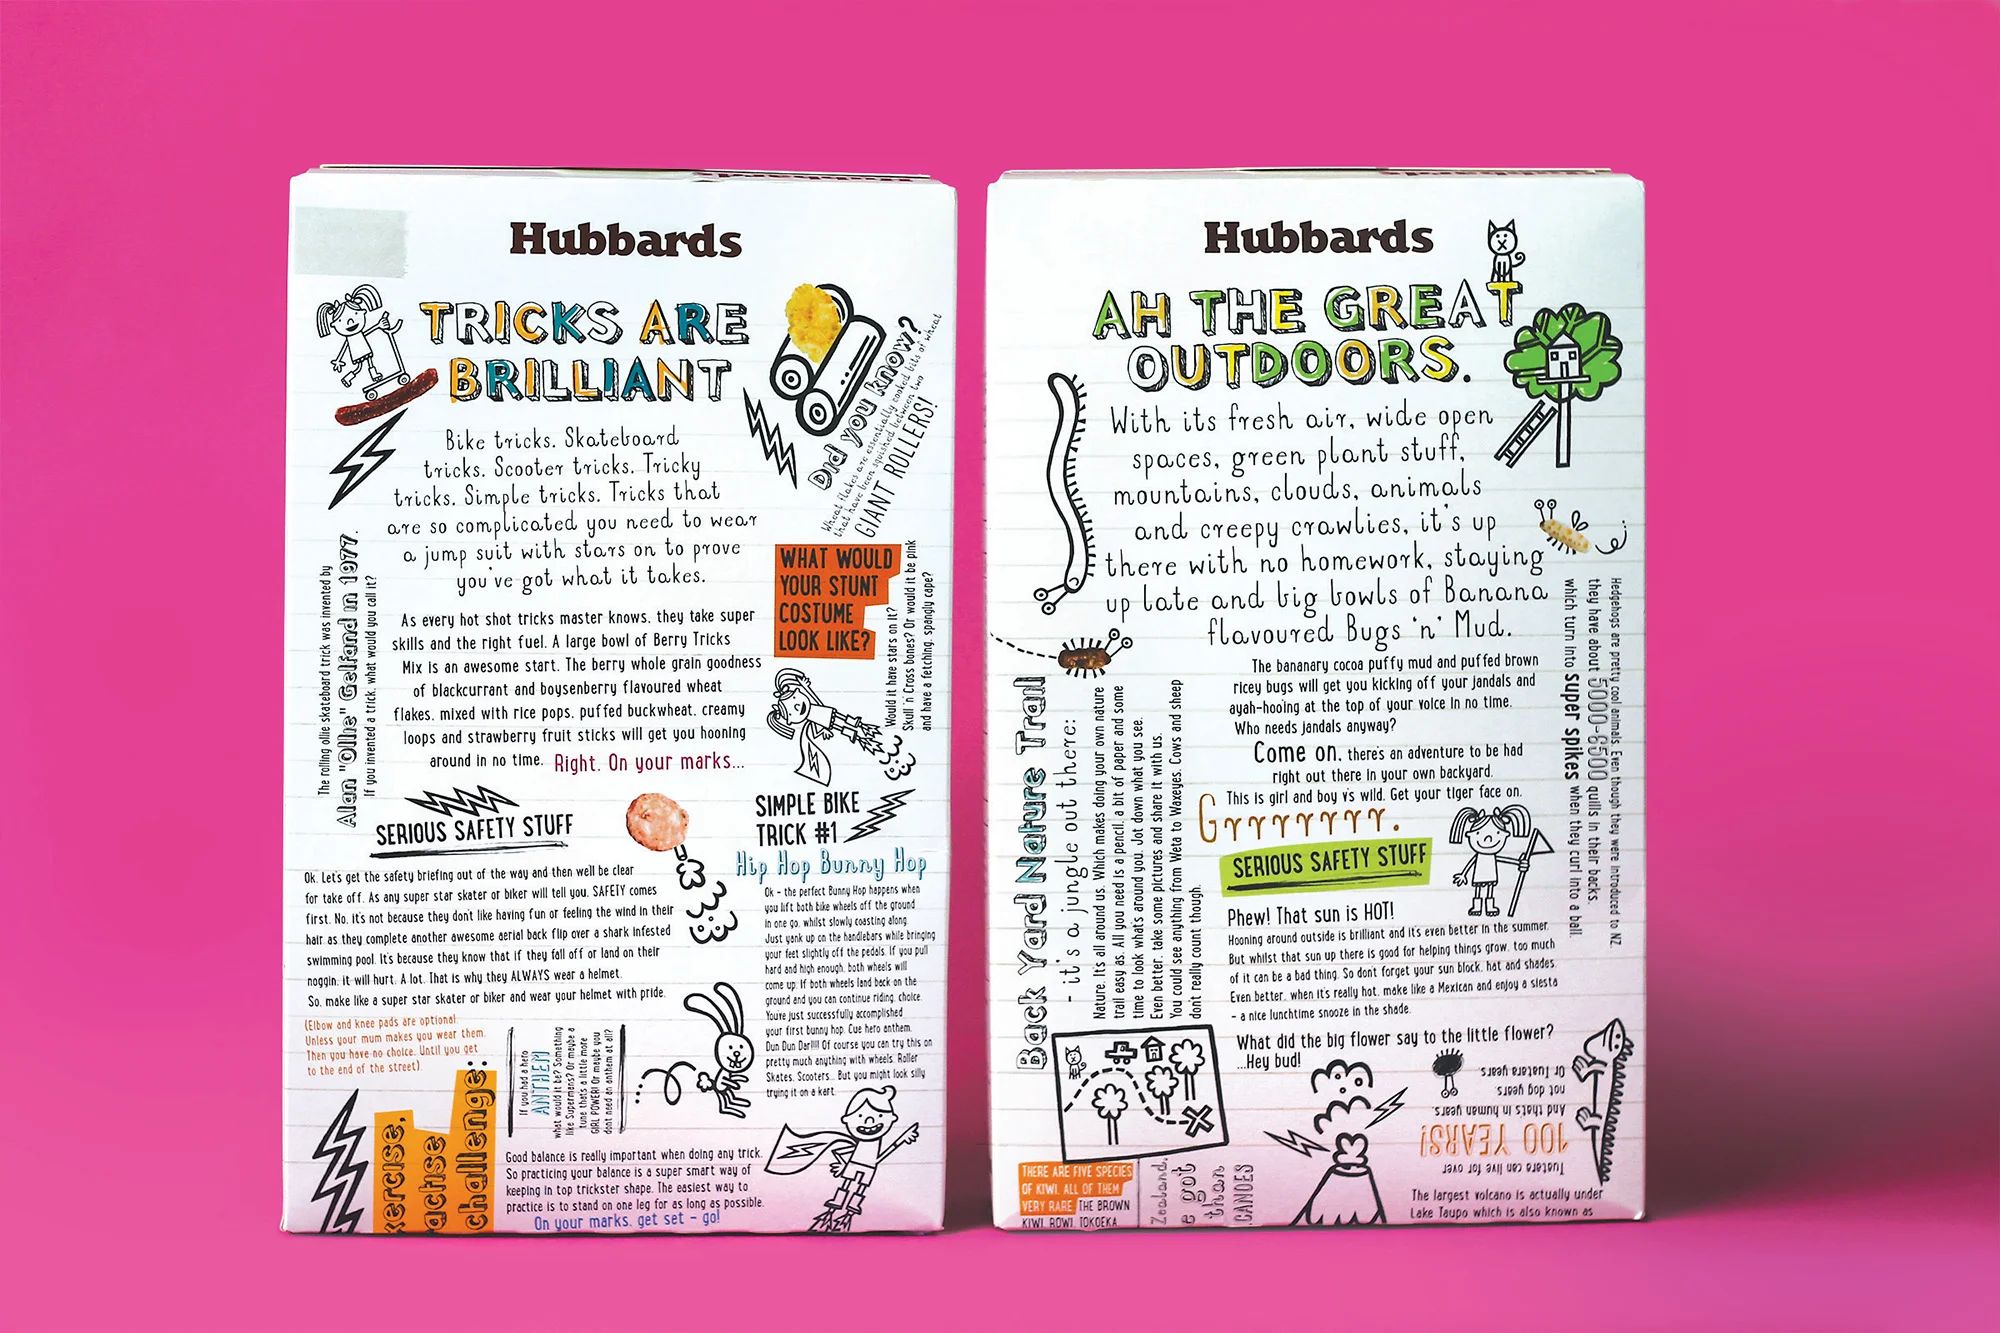 Hubbards
TRICKS ARE
BRILLIANT
Bike tricks. Skateboard
tricks. Scooter tricks. Tricky
tricks. Simple tricks. Tricks that
are so complicated you need to wear
a jump suit with stars on to prove
you've got what it takes.
As every hot shot tricks master knows, they take super
skills and the right fuel. A large bowl of Berry Tricks
Mix is an awesome start. The berry whole grain goodness
of blackcurrant and boysenberry flavoured wheat
flakes, mixed with rice pops, puffed buckwheat, creamy
loops and strawberry fruit sticks will get you hooning
around in no time. Right. On your marks...
Did you know?
Wheat flakes are essentially cooked bits of wheat
that have been squished between two
GIANT ROLLERS!
WHAT WOULD
YOUR STUNT
COSTUME
LOOK LIKE?
Would it have stars on it?
Skull 'n' Cross bones? Or would it be pink
and have a fetching, spangly cape?
The rolling ollie skateboard trick was invented by
Alan "Ollie" Gelfand in 1977.
If you invented a trick, what would you call it?
SERIOUS SAFETY STUFF
Ok. Let's get the safety briefing out of the way and then we'll be clear
for take off. As any super star skater or biker will tell you, SAFETY comes
first. No, it's not because they don't like having fun or feeling the wind in their
hair as they complete another awesome aerial back flip over a shark infested
swimming pool. It's because they know that if they fall off or land on their
noggin, it will hurt. A lot. That is why they ALWAYS wear a helmet.
So, make like a super star skater or biker and wear your helmet with pride.
(Elbow and knee pads are optional.
Unless your mum makes you wear them.
Then you have no choice. Until you get
to the end of the street).
SIMPLE BIKE
TRICK #1
Hip Hop Bunny Hop
Ok - the perfect Bunny Hop happens when
you lift both bike wheels off the ground
in one go, whilst slowly coasting along.
Just yank up on the handlebars while bringing
your feet slightly off the pedals. If you pull
hard and high enough, both wheels will
come up. If both wheels land back on the
ground and you can continue riding, choice.
You're just successfully accomplished
your first bunny hop. Cue hero anthem.
Dun Dun Dar!!!! Of course you can try this on
pretty much anything with wheels. Roller
Skates. Scooters... But you might look silly
trying it on a kart.
If you had a hero
ANTHEM
what would it be? Something
like Supermans? Or maybe a
tune that's a little more
GIRL POWER! Or maybe you
dont need an anthem at all?
challenge:
Good balance is really important when doing any trick.
So practicing your balance is a super smart way of
keeping in top trickster shape. The easiest way to
practice is to stand on one leg for as long as possible.
On your marks, get set - go!
Hubbards
AH THE GREAT
OUTDOORS.
With its fresh air, wide open
spaces, green plant stuff,
mountains, clouds, animals
and creepy crawlies, it's up
there with no homework, staying
up late and big bowls of Banana
flavoured Bugs 'n' Mud.
The bananary cocoa puffy mud and puffed brown
ricey bugs will get you kicking off your jandals and
ayah-hooing at the top of your voice in no time.
Who needs jandals anyway?
Come on, there's an adventure to be had
right out there in your own backyard.
This is girl and boy vs wild. Get your tiger face on.
Grrrrrrrr.
Hedgehogs are pretty cool animals. Even though they were introduced to NZ,
they have about 5000-6500 quills in their backs,
which turn into super spikes when they curl into a ball.
Back Yard Nature Trail
- it's a jungle out there:
Nature. It's all around us. Which makes doing your own nature
trail easy as. All you need is a pencil, a bit of paper and some
time to look what's around you. Jot down what you see.
Even better, take some pictures and share it with us.
You could see anything from Weta to Waxeyes. Cows and sheep
don't really count though.
SERIOUS SAFETY STUFF
Phew! That sun is HOT!
Hooning around outside is brilliant and it's even better in the summer.
But whilst that sun up there is good for helping things grow, too much
of it can be a bad thing. So don't forget your sun block, hat and shades.
Even better, when it's really hot, make like a Mexican and enjoy a siesta
- a nice lunchtime snooze in the shade.
What did the big flower say to the little flower?
...Hey bud!
Tuatara can live for over
100 YEARS!
And that's in human years
not dog years.
Or Tuatara years
THERE ARE FIVE SPECIES
OF KIWI. ALL OF THEM
VERY RARE THE BROWN
KIWI, ROWI, TOKOEKA
Zealand,
e got
than
CANOES
The largest volcano is actually under
Lake Taupo which is also known as